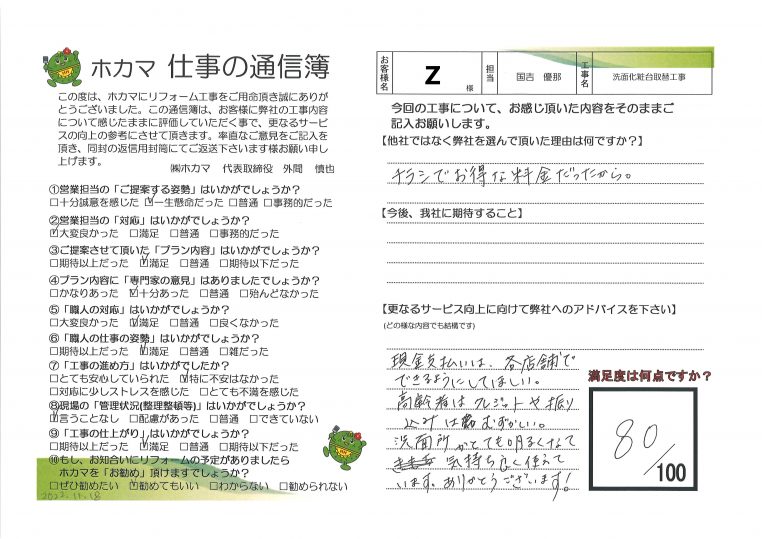 ホカマ 仕事の通信簿
この度は、ホカマにリフォーム工事をご用命頂き誠にありが
とうございました。この通信簿は、お客様に弊社の工事内容
について感じたままに評価していただく事で、更なるサービ
スの向上の参考にさせて頂きます。率直なご意見をご記入を
頂き、同封の返信用封筒にてご返送下さいます様お願い申し
上げます。
㈱ホカマ 代表取締役 外間 慎也
①営業担当の「ご提案する姿勢」はいかがでしょうか?
□十分誠意を感じた ☑一生懸命だった □普通 □事務的だった
②営業担当の「対応」はいかがでしょうか?
☑大変良かった □満足 □普通 □事務的だった
③ご提案させて頂いた「プラン内容」はいかがでしょうか?
□期待以上だった ☑満足 □普通 □期待以下だった
④プラン内容に「専門家の意見」はありましたでしょうか?
□かなりあった ☑十分あった □普通 □殆んどなかった
⑤「職人の対応」はいかがでしょうか?
□大変良かった ☑満足 □普通 □良くなかった
⑥「職人の仕事の姿勢」はいかがでしょうか?
□期待以上だった ☑満足 □普通 □雑だった
⑦「工事の進め方」はいかがでしたか?
□とても安心していられた ☑特に不安はなかった
□対応に少しストレスを感じた □とても不満を感じた
⑧現場の「管理状況(整理整頓等)」はいかがでしょうか?
☑言うことなし □配慮があった □普通 □できていない
⑨「工事の仕上がり」はいかがでしょうか?
□期待以上だった ☑満足 □普通 □期待以下だった
⑩もし、お知合いにリフォームの予定がありましたら
ホカマを「お勧め」頂けますでしょうか?
□ぜひ勧めたい ☑勧めてもいい □わからない □勧められない
2022.11.18
お客様名 Z 様 担当 国吉 優那 工事名 洗面化粧台取替工事
今回の工事について、お感じ頂いた内容をそのままご
記入お願いします。
【他社ではなく弊社を選んで頂いた理由は何ですか?】
チラシでお得な料金だったから。
【今後、我社に期待すること】
【更なるサービス向上に向けて弊社へのアドバイスを下さい】
(どの様な内容でも結構です)
現金支払いは、各店舗で
できるようにしてほしい。
高齢者はクレジットや振り
込みはむずかしい。
洗面所がとても明るくなって
気持ち良く使えて
います。ありがとうございます!
満足度は何点ですか?
80/100